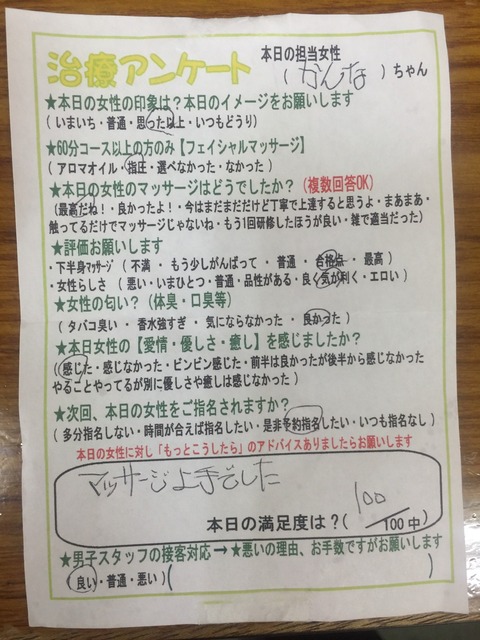 本日の担当女性
治療アンケート ( かんな ) ちゃん
★本日の女性の印象は？本日のイメージをお願いします
( いまいち・普通・思った以上・いつもどうり )
★60分コース以上の方のみ【フェイシャルマッサージ】
( アロマオイル・指圧・選べなかった・なかった )
★本日の女性のマッサージはどうでしたか？ (複数回答OK)
(最高だね！・良かったよ！・今はまだまだだけど丁寧で上達すると思うよ・まあまあ・
触ってるだけでマッサージじゃないね・もう1回研修したほうが良い・雑で適当だった)
★評価お願いします
・下半身マッサージ ( 不満 ・ もう少しがんばって ・ 普通 ・ 合格点 ・ 最高 )
・女性らしさ ( 悪い・いまひとつ・普通・品性がある・良く気が利く・エロい )
★女性の匂い？ (体臭・口臭等)
( タバコ臭い ・ 香水強すぎ ・ 気にならなかった ・ 良かった )
★本日女性の【愛情・優しさ・癒し】を感じましたか？
(感じた・感じなかった・ビンビン感じた・前半は良かったが後半から感じなかった
やることやってるが別に優しさや癒しは感じなかった )
★次回、本日の女性をご指名されますか？
( 多分指名しない・時間が合えば指名したい・是非予約指名したい・いつも指名なし )
本日の女性に対し「もっとこうしたら」のアドバイスありましたらお願いします
マッサージ上手でした
本日の満足度は？( 100/100中 )
★男子スタッフの接客対応 → ★悪いの理由、お手数ですがお願いします
( 良い・普通・悪い ) ( )